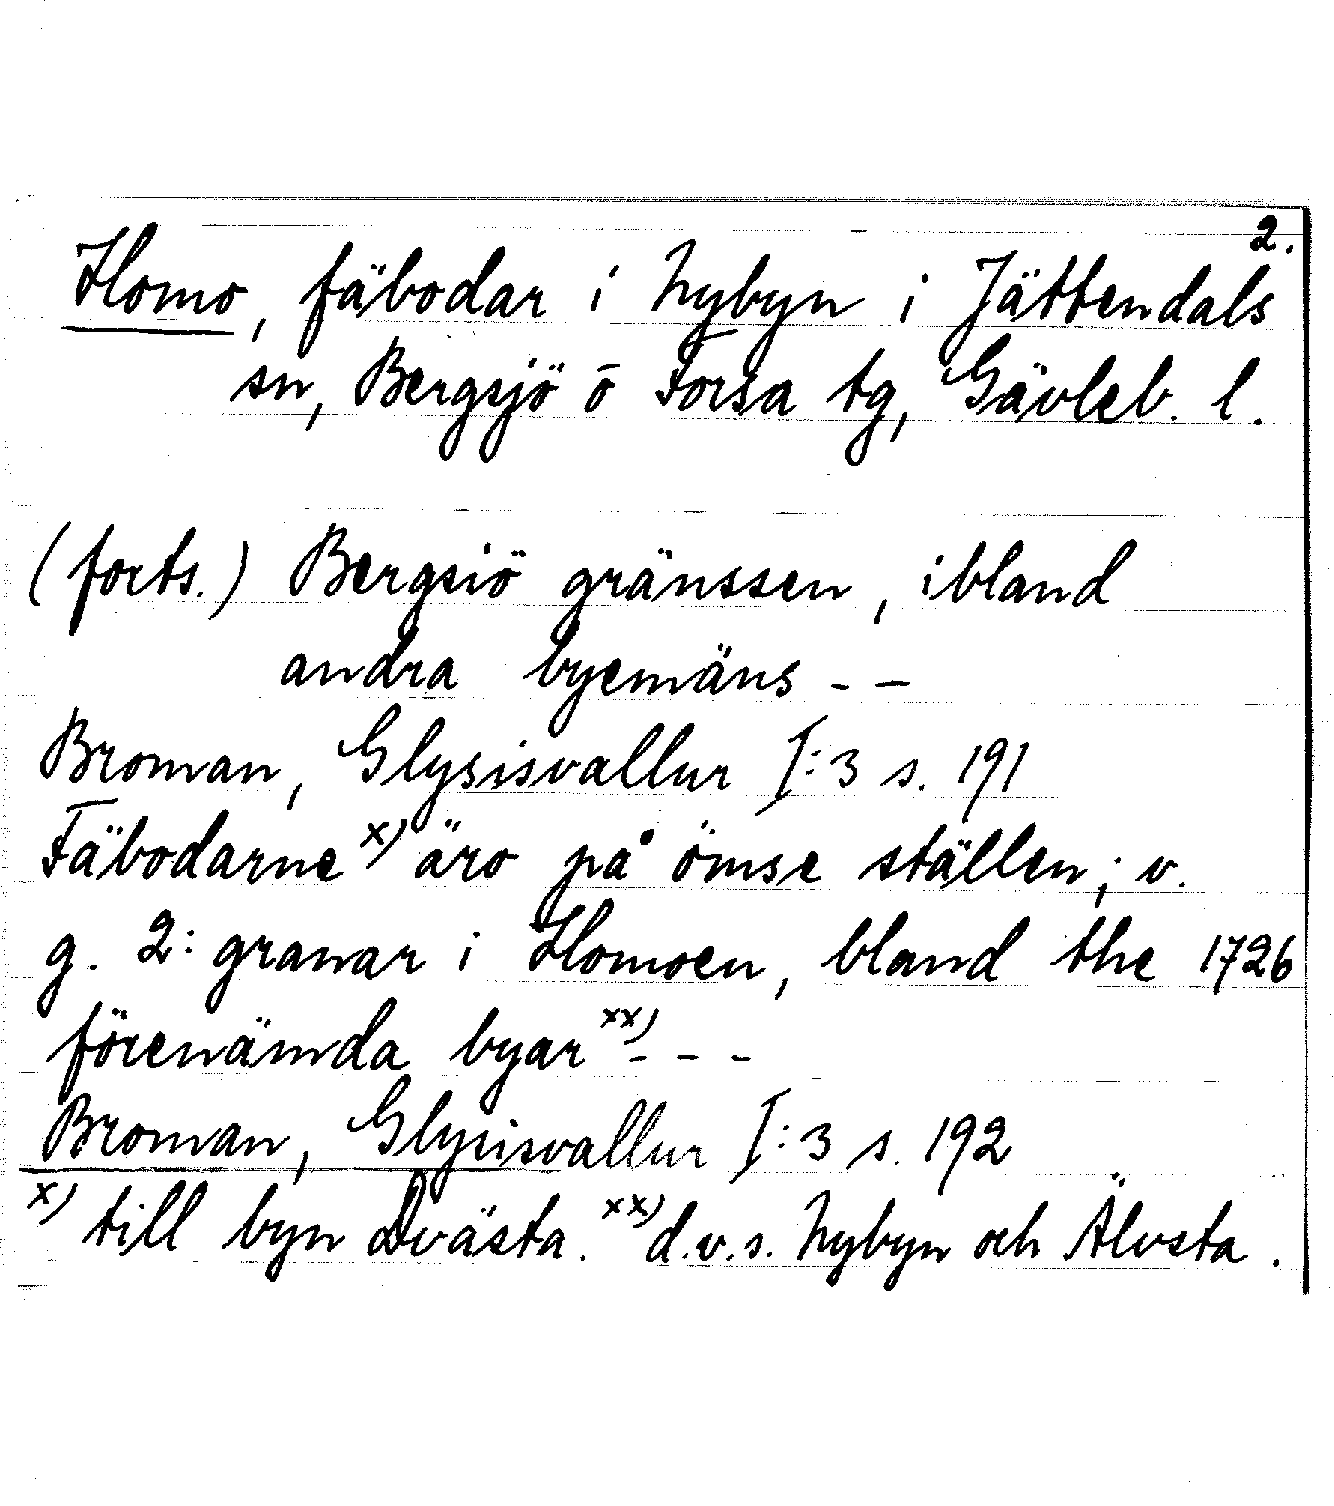 2.
Homo, fäbodar i Nybyn i Jättendals
sn, Bergsjö o Forsa tg, Gävleb. l.
(forts.) Bergsiö gränssen, ibland
andra byemäns - -
Broman, Glysisvallur I:3 s. 191
Fäbodarne x) äro på ömse ställen; v.
g. 2: granar i Homoen, bland the 1726
förenämda byar xx) - - -
Broman, Glysisvallur I:3 s. 192
x) till byn Dvästa. xx) d.v.s. Nybyn och Älvsta.